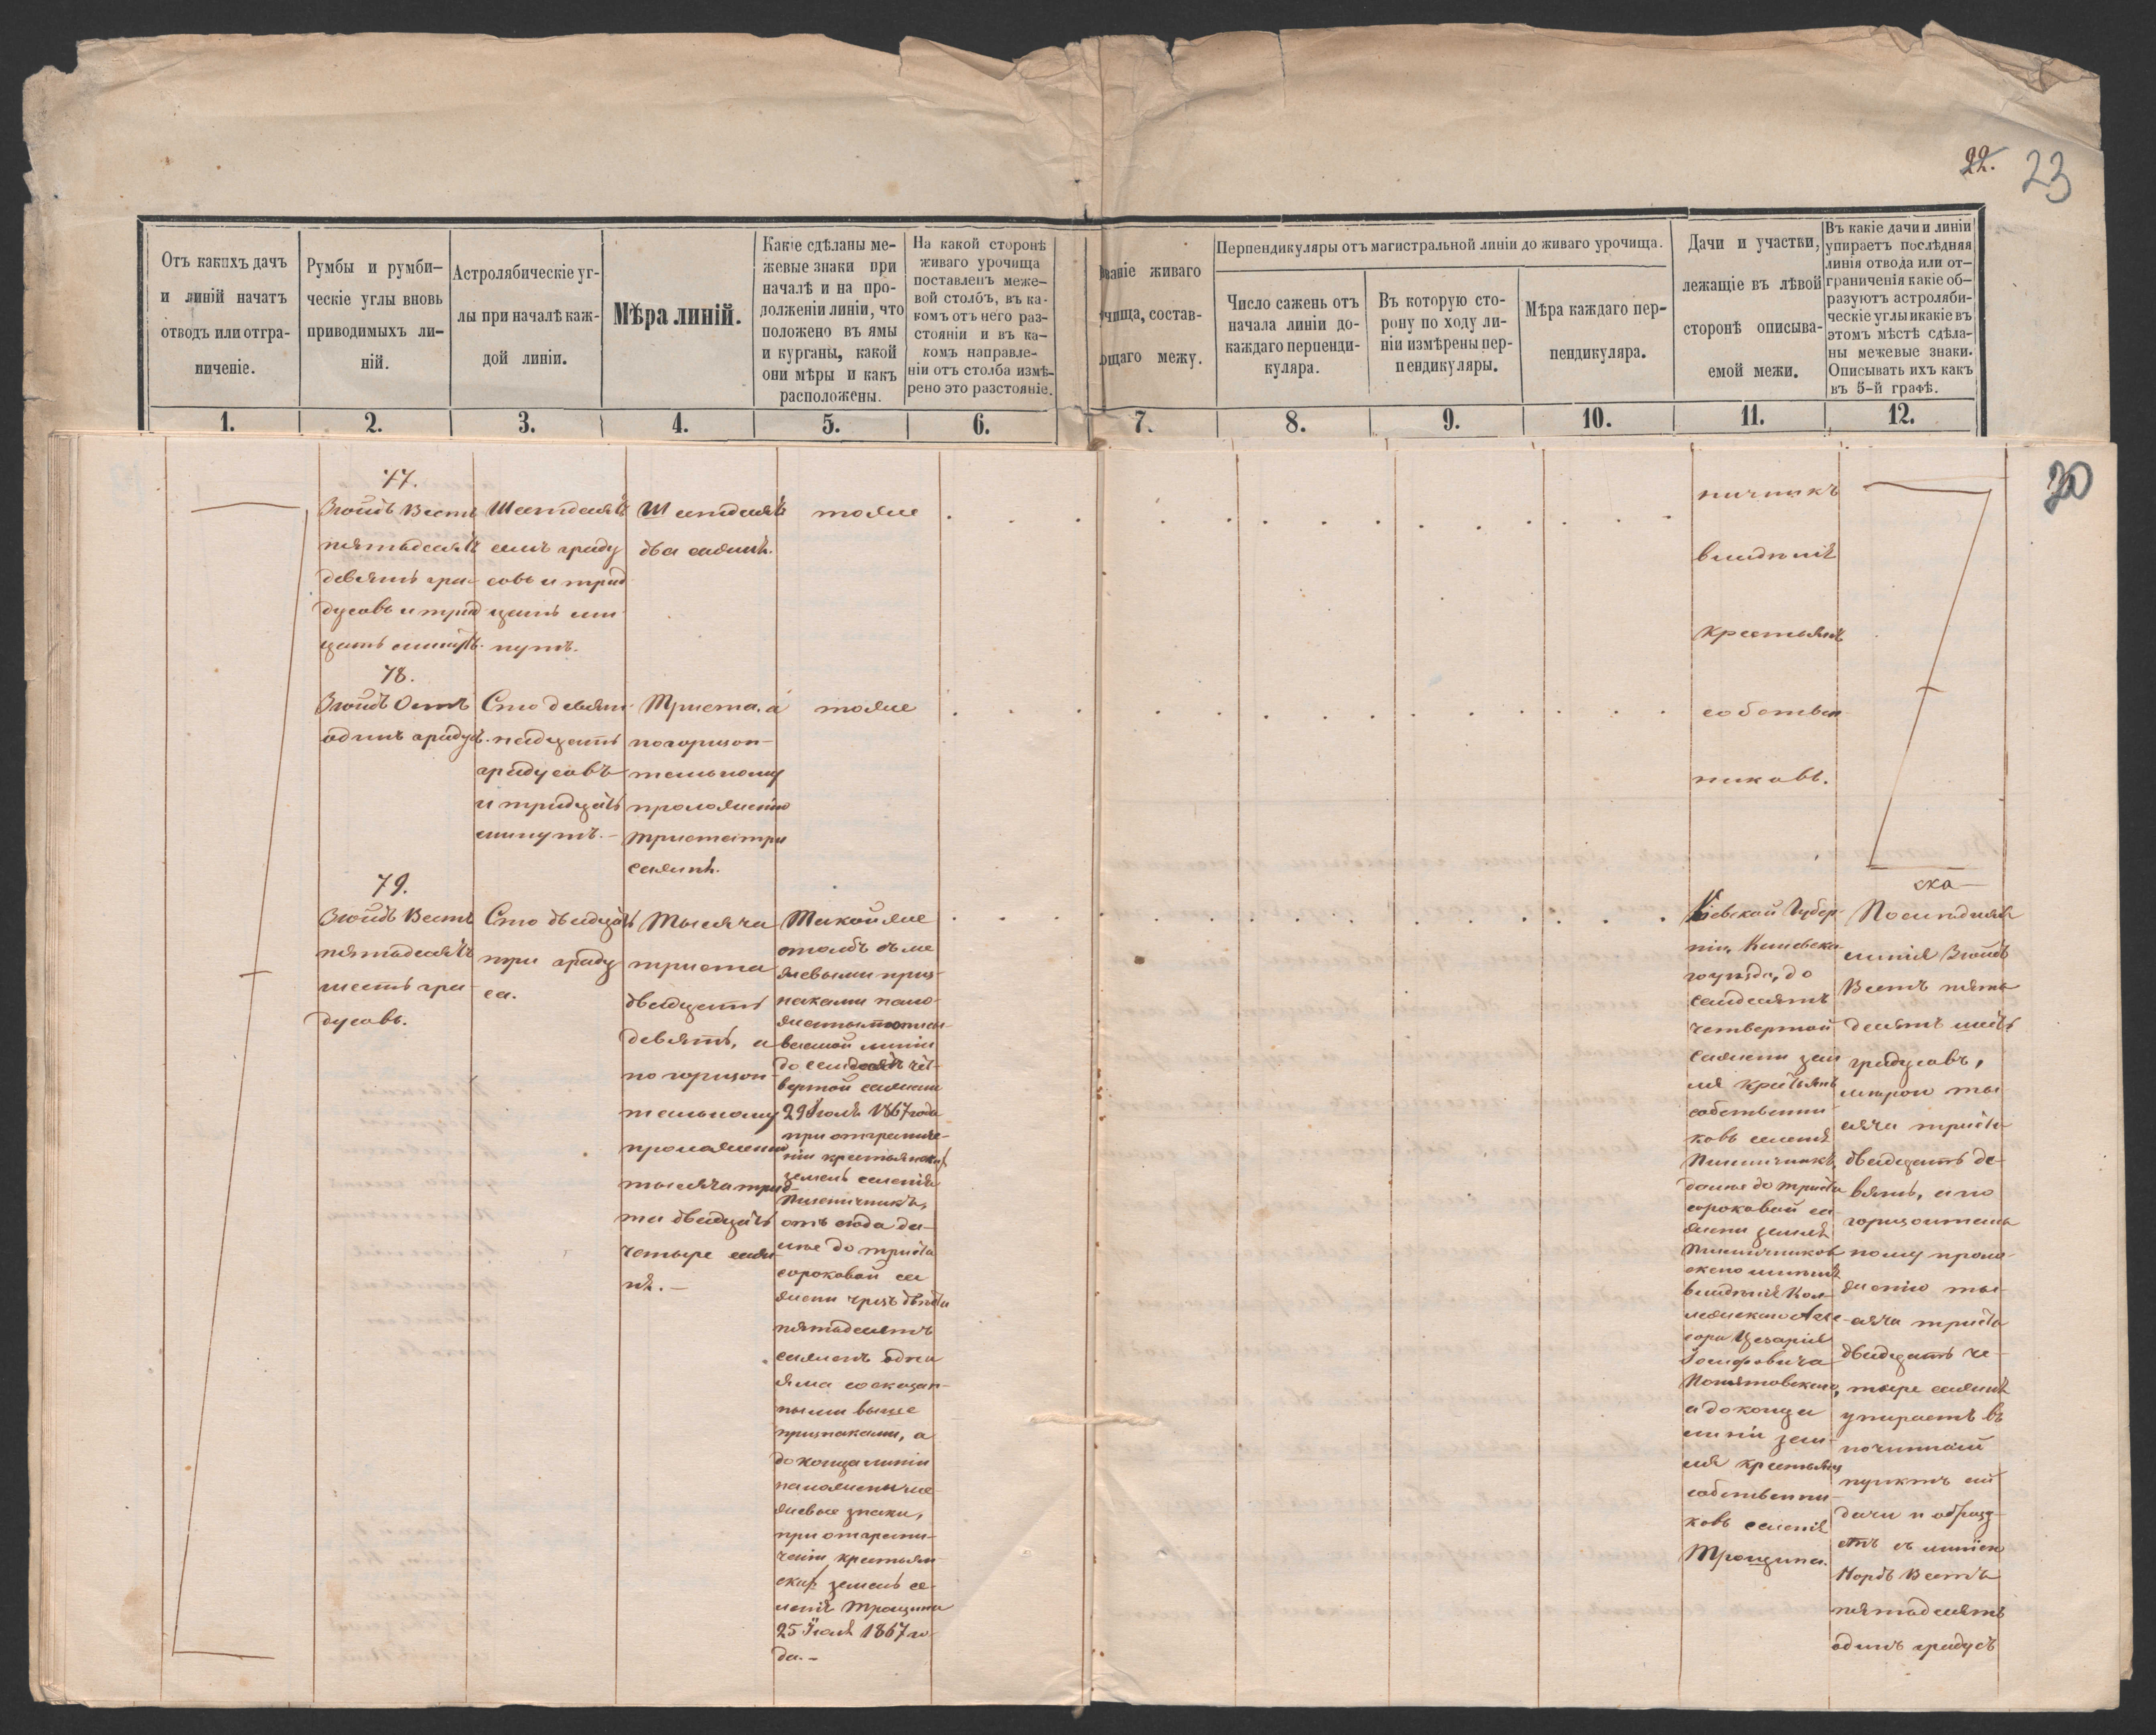 22. 23
Отъ какихъ дачъ
и линій начатъ
отводъ или отгра-
ниченіе.
Румбы и румби-
ческіе углы вновь
приводимыхъ ли-
ній.
Астролябическіе уг-
лы при началѣ каж-
дой линіи.
Мѣра линій.
Какіе сдѣланы ме-
жевые знаки при
началѣ и на про-
долженіи линіи, что
положено въ ямы
и курганы, какой
они мѣры и какъ
расположены.
На какой сторонѣ
живаго урочища
поставленъ меже-
вой столбъ, въ ка-
комъ отъ него раз-
стояніи и въ ка-
комъ направле-
ніи отъ столба измѣ-
рено это разстояніе.
ваніе живаго
чища, состав-
ющаго межу.
Перпендикуляры отъ магистральной линіи до живаго урочища.
Число сажень отъ
начала линіи до-
каждаго перпенди-
куляра.
Въ которую сто-
рону по ходу ли-
ніи измѣрены пер-
пендикуляры.
Мѣра каждаго пер-
пендикуляра.
Дачи и участки,
лежащіе въ лѣвой
сторонѣ описыва-
емой межи.
Въ какіе дачи и линіи
упираетъ послѣдняя
линія отвода или от-
граниченія какіе об-
разуютъ астроляби-
ческіе углы и какіе въ
этомъ мѣстѣ сдѣла-
ны межевые знаки.
Описывать ихъ какъ
въ 5-й графѣ.
1. 2. 3. 4. 5. 6. 7. 8. 9. 10. 11. 12.
30
77.
Зюйдъ Вестъ
пятьдесятъ
девять гра-
дусовъ и трид
цать минутъ.
Шестьдесятъ
семь граду
совъ и трид
цать ми
нутъ.
Шестьдесятъ
два сажня.
тоже
78.
Зюйдъ Остъ
одинъ градусъ.
Сто девят-
надцать
градусовъ
и тридцать
минутъ.
Триста, а
по горизон-
тальному
проложенію
триста три
сажня.
тоже
79.
Зюйдъ Вестъ
пятьдесятъ
шесть гра-
дусовъ.
Сто двадцать
три граду
са.
Тысяча
триста
двадцать
девять, а
по горизон-
тальному
проложенію
тысяча трис-
та двадцать
четыре саж
ня.
Такой же
столбъ съ ме
жевыми приз-
наками поло-
жены
линіи
до семьдесятъ чет-
вертой сажени
29 Іюля 1867 года
при отграниче-
ніи крестьянскихъ
земель селенія
Пшеничникъ,
отъ сюда да-
лѣе до триста
сороковой са
жени чрезъ двѣсти
пятьдесятъ
сажень одна
яма со сказан-
ными выше
признаками, а
до конца линіи
положены ме
жевые знаки,
при отграни-
ченіи крестьян
скихъ земель се-
ленія Трощина
25 Іюля 1867 го-
да.
ничникъ
владѣнія
крестьянъ
собствен
никовъ.
Кіевской Губер
ніи, Каневска
го уѣзда, до
семьдесятъ
четвертой
сажени зем
ля крестьянъ
собственни-
ковъ селенія
Пшеничникъ,
далѣе до триста
сороковой са
жени земля
Пшеничников
скаго имѣнія
владѣнія Кол-
лежскаго Ассе
сора Цезарія
Іосифовича
Понятовскаго,
а до конца
линіи зем-
ля крестьянъ
собственни-
ковъ селенія
Трощина.
Послѣдняя
линія Зюйдъ
Вестъ пять
десятъ шесть
градусовъ,
мѣрою ты
сяча триста
двадцать де-
вять, а по
горизонталь
ному проло
женію ты-
сяча триста
двадцать че-
тыре сажня
упираетъ въ
починный
пунктъ сей
дачи и образу-
етъ съ линіею
Нордъ Вестъ
пятьдесятъ
одинъ градусъ